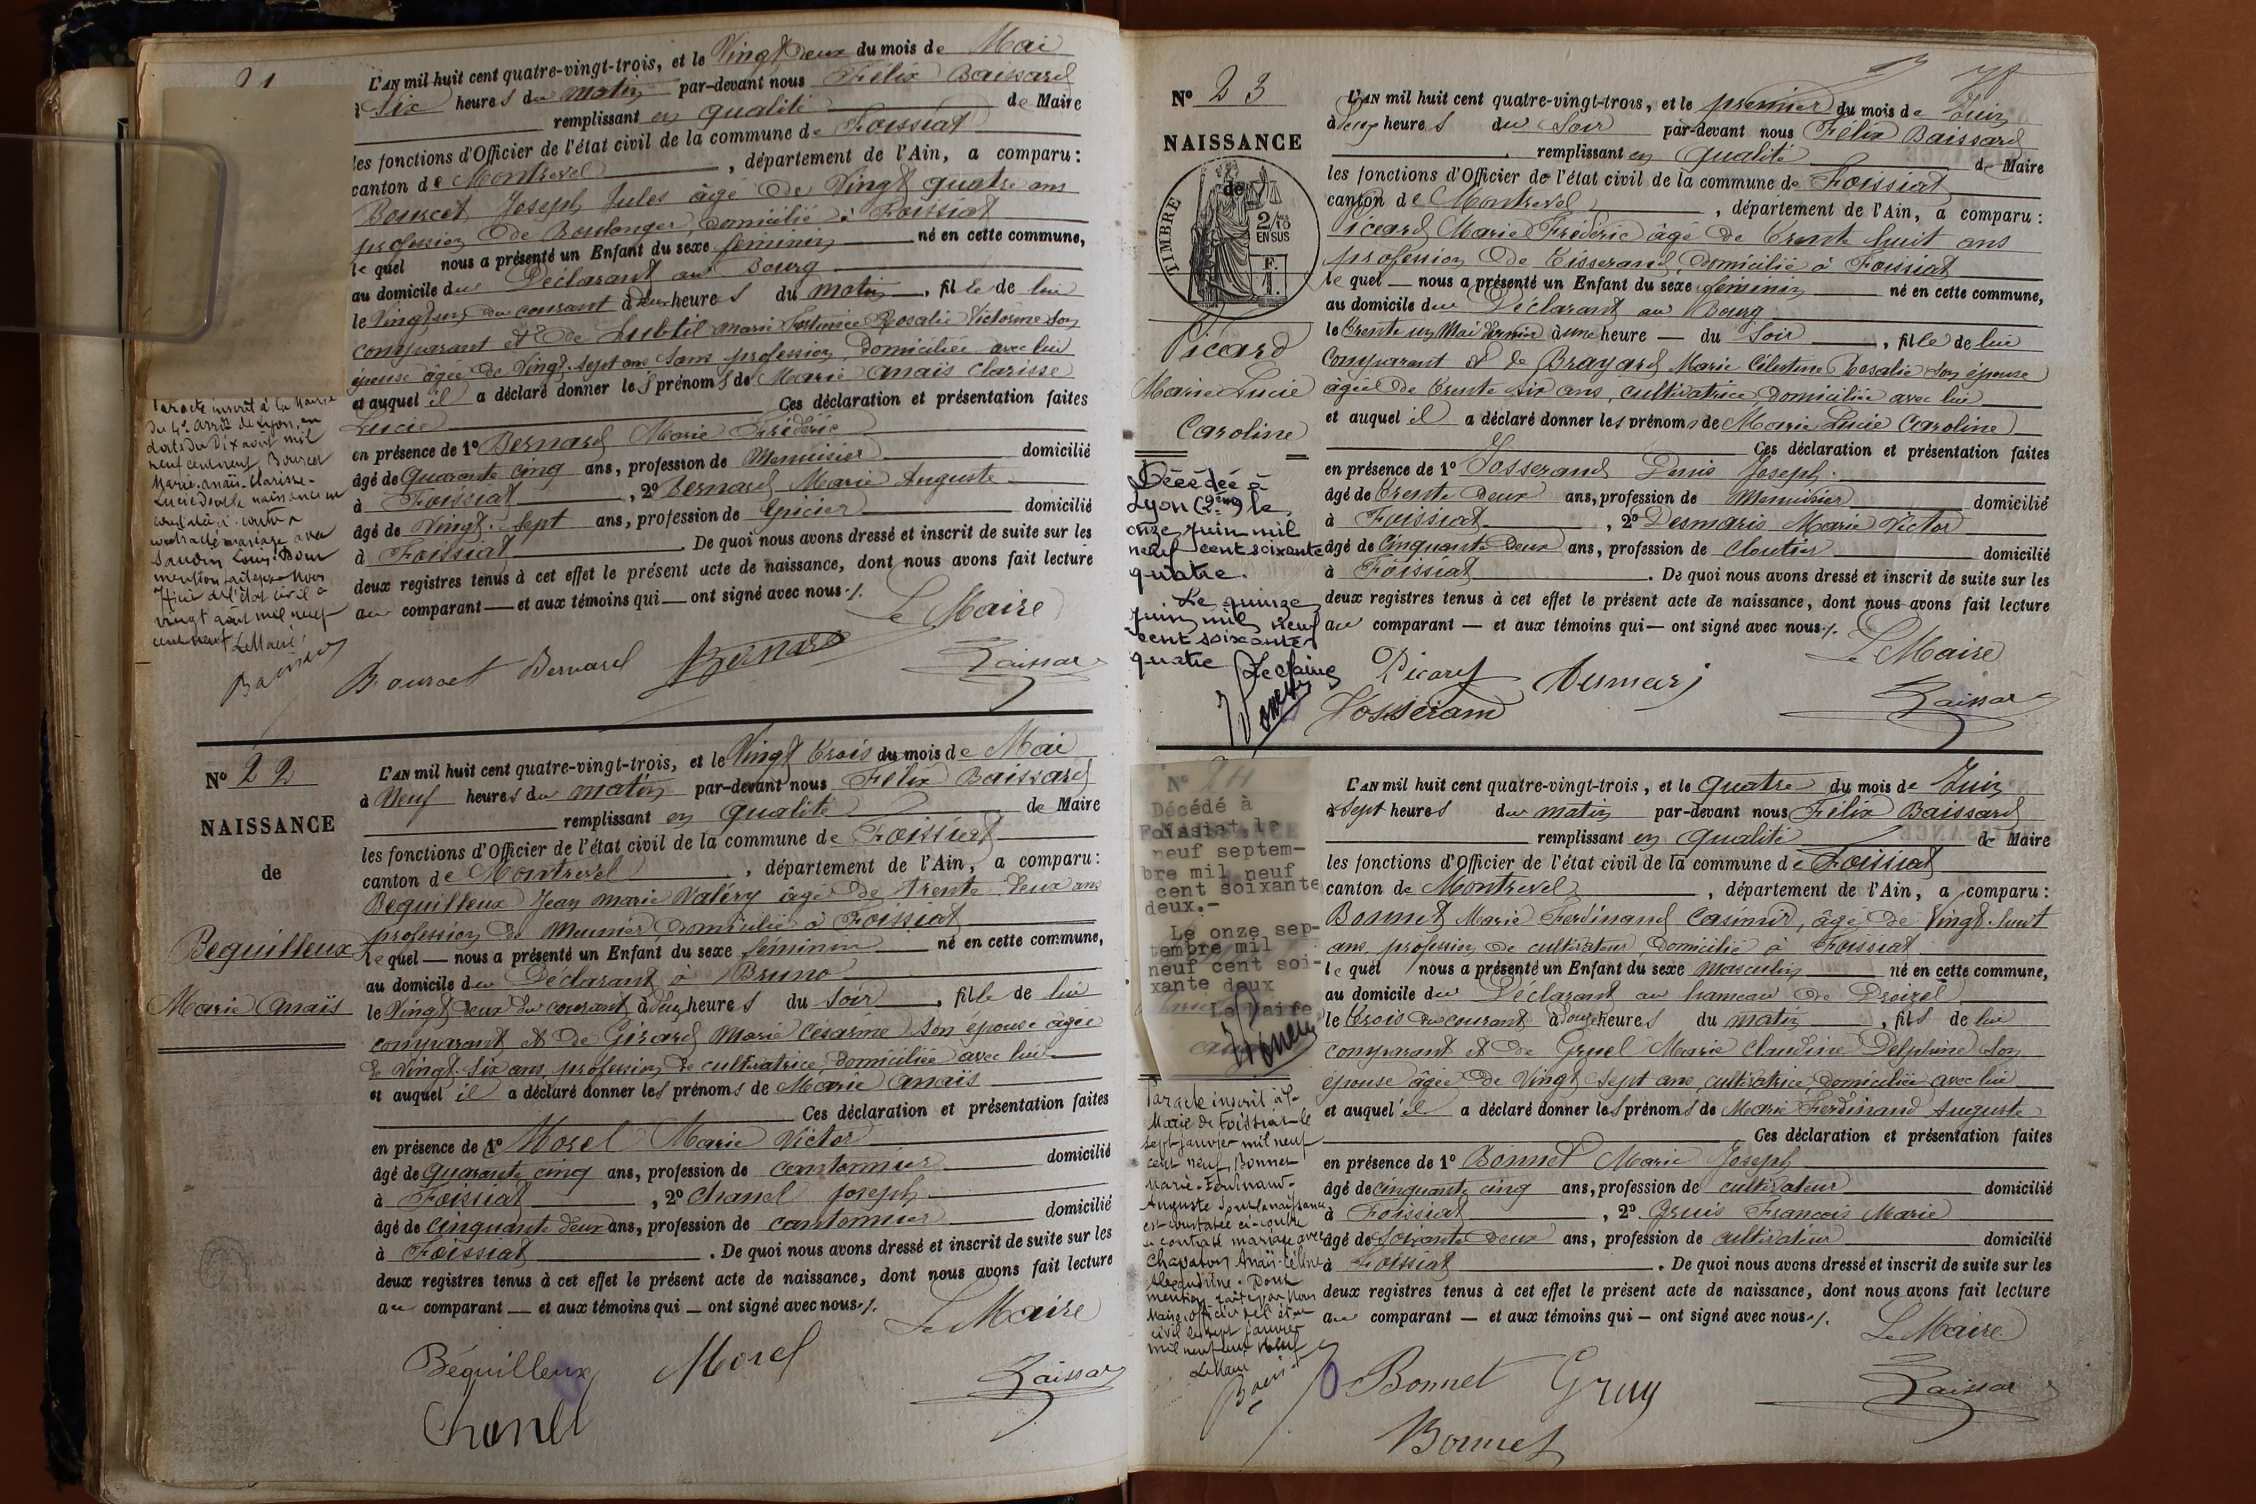 21
L'AN mil huit cent quatre-vingt-trois, et le Vingt deux du mois de Mai
à Six heures du matin par-devant nous Félix Baissard
remplissant en qualité de Maire
les fonctions d'Officier de l'état civil de la commune de Foissiat
canton de Montrevel, département de l'Ain, a comparu:
Bourcet Joseph Jules âgé de Vingt quatre ans
profession de Boulanger, domicilié à Foissiat
le quel nous a présenté un Enfant du sexe féminin né en cette commune,
au domicile du Déclarant au Bourg
le Vingt un du courant à deux heures du matin, fille de lui
comparant et de Subtil Marie Rosalie Victorine son
épouse âgée de Vingt-sept ans sans profession, domiciliée avec lui
et auquel il a déclaré donner les prénoms de Marie Anaïs Clarisse
Lucie Ces déclaration et présentation faites
en présence de 1º Bernard Marie Frédéric
âgé de Quarante cinq ans, profession de Menuisier domicilié
à Foissiat, 2º Bernard Marie Auguste
âgé de Vingt-sept ans, profession de Epicier domicilié
à Foissiat. De quoi nous avons dressé et inscrit de suite sur les
deux registres tenus à cet effet le présent acte de naissance, dont nous avons fait lecture
au comparant et aux témoins qui ont signé avec nous ./.
Le Maire
Bourcet Bernard Bernard Baissard
Par acte inscrit à la Mairie
du 4e arrt de Lyon, en
date du Dix août mil
neuf cent neuf, Bourcet
Marie-Anaïs-Clarisse-
Lucie dont la naissance est
constatée ci-contre a
contracté mariage avec
Louis. Dont
mention faite par Nous
Officier de l'état civil le
vingt août mil neuf
cent neuf Le Maire
Nº 22
NAISSANCE
de
Bequilleux
Marie Anaïs
L'AN mil huit cent quatre-vingt-trois, et le Vingt trois du mois de Mai
à Neuf heures du matin par-devant nous Félix Baissard
remplissant en qualité de Maire
les fonctions d'Officier de l'état civil de la commune de Foissiat
canton de Montrevel, département de l'Ain, a comparu:
Bequilleux Jean Marie Valéry âgé de trente deux ans
profession de Meunier, domicilié à Foissiat
le quel nous a présenté un Enfant du sexe féminin né en cette commune,
au domicile du Déclarant à Bruno
le Vingt deux du courant à heures du soir, fille de lui
comparant et de Girard Marie Cesarine son épouse âgée
de Vingt-Six ans, profession de cultivatrice, domiciliée avec lui
et auquel il a déclaré donner les prénoms de Marie Anaïs
Ces déclaration et présentation faites
en présence de 1º Morel Marie Victor
âgé de quarante cinq ans, profession de cantonnier domicilié
à Foissiat, 2º Chanel Joseph
âgé de cinquante deux ans, profession de cantonnier domicilié
à Foissiat. De quoi nous avons dressé et inscrit de suite sur les
deux registres tenus à cet effet le présent acte de naissance, dont nous avons fait lecture
au comparant et aux témoins qui ont signé avec nous ./.
Le Maire
Béquilleux Morel Baissard
Chanel
Nº 23
NAISSANCE
de
TIMBRE
2/10 EN SUS
Picard
Marie Lucie
Caroline
Décédée à
Lyon (2ème) le
onze juin mil
neuf cent soixante
quatre.
Le quinze
juin mil neuf
cent soixante
quatre
Le Maire
L'AN mil huit cent quatre-vingt-trois, et le premier du mois de Juin
à heures du Soir par-devant nous Félix Baissard
remplissant en qualité de Maire
les fonctions d'Officier de l'état civil de la commune de Foissiat
canton de Montrevel, département de l'Ain, a comparu:
Picard Marie Frédéric âgé de trente huit ans
profession de Tisserand, domicilié à Foissiat
le quel nous a présenté un Enfant du sexe féminin né en cette commune,
au domicile du Déclarant au Bourg
le trente un Mai dernier à une heure du Soir, fille de lui
comparant et de Brayard Marie Célestine Rosalie son épouse
âgée de trente six ans, cultivatrice, domiciliée avec lui
et auquel il a déclaré donner les prénoms de Marie Lucie Caroline
Ces déclaration et présentation faites
en présence de 1º Josserand Denis Joseph
âgé de trente deux ans, profession de Menuisier domicilié
à Foissiat, 2º Desmaris Marie Victor
âgé de Cinquante deux ans, profession de Cloutier domicilié
à Foissiat. De quoi nous avons dressé et inscrit de suite sur les
deux registres tenus à cet effet le présent acte de naissance, dont nous avons fait lecture
au comparant et aux témoins qui ont signé avec nous ./.
Le Maire
Picard Desmaris
Josserand Baissard
Nº 24
Décédé à
Foissiat le
neuf septem-
bre mil neuf
cent soixante
deux.-
Le onze sep-
tembre mil
neuf cent soi-
xante deux
Le Maire
Par acte inscrit à la
Mairie de Foissiat le
sept janvier mil neuf
cent neuf, Bonnet
Marie-Ferdinand-
Auguste dont la naissance
est constatée ci-contre
a contracté mariage avec
Chapaton Anaïs
Dont
mention faite par Nous
Maire officier de l'état
civil le sept janvier
mil neuf cent neuf
Le Maire
L'AN mil huit cent quatre-vingt-trois, et le quatre du mois de Juin
à Sept heures du matin par-devant nous Félix Baissard
remplissant en qualité de Maire
les fonctions d'Officier de l'état civil de la commune de Foissiat
canton de Montrevel, département de l'Ain, a comparu:
Bonnet Marie Ferdinand Casimir, âgé de Vingt-huit
ans, profession de cultivateur, domicilié à Foissiat
le quel nous a présenté un Enfant du sexe masculin né en cette commune,
au domicile du Déclarant au hameau de
le trois du courant à onze heures du matin, fils de lui
comparant et de Gruel Marie Claudine Delphine son
épouse âgée de Vingt sept ans, cultivatrice, domiciliée avec lui
et auquel il a déclaré donner les prénoms de Marie Ferdinand Auguste
Ces déclaration et présentation faites
en présence de 1º Bonnet Marie Joseph
âgé de cinquante cinq ans, profession de cultivateur domicilié
à Foissiat, 2º Gruis François Marie
âgé de soixante deux ans, profession de cultivateur domicilié
à Foissiat. De quoi nous avons dressé et inscrit de suite sur les
deux registres tenus à cet effet le présent acte de naissance, dont nous avons fait lecture
au comparant et aux témoins qui ont signé avec nous ./.
Le Maire
Bonnet Baissard
Bonnet